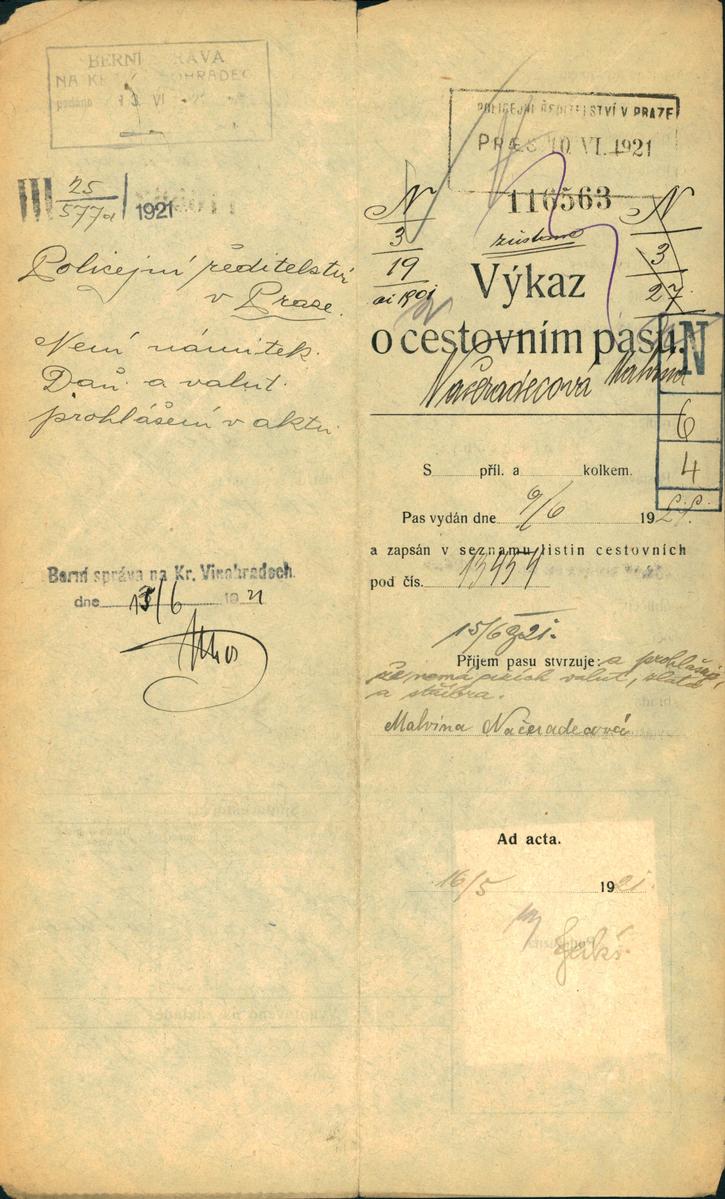 BERNÍ SPRÁVA
NA KR. VINOHRADECH
podáno 13 VI
III 25/577a 1921
Policejní ředitelství
v Praze.
Není námitek.
Daň. a valut.
prohlášení v aktu.
Berní správa na Kr. Vinohradech.
dne 15/6 1921
POLICEJNÍ ŘEDITELSTVÍ V PRAZE
PRÆS 10. VI. 1921
116563
N
3
19
N
3
27
Výkaz
o cestovním pasu.
Načeradecová Malvina
N
6
4
S příl. a kolkem.
Pas vydán dne 9/6 1921.
a zapsán v seznamu listin cestovních
pod čís. 13459
15/6 21.
Příjem pasu stvrzuje: a prohlašuji,
že nemá cizích valut, zlata
a stříbra.
Malvina Načeradecová
Ad acta.
16/5 1921.